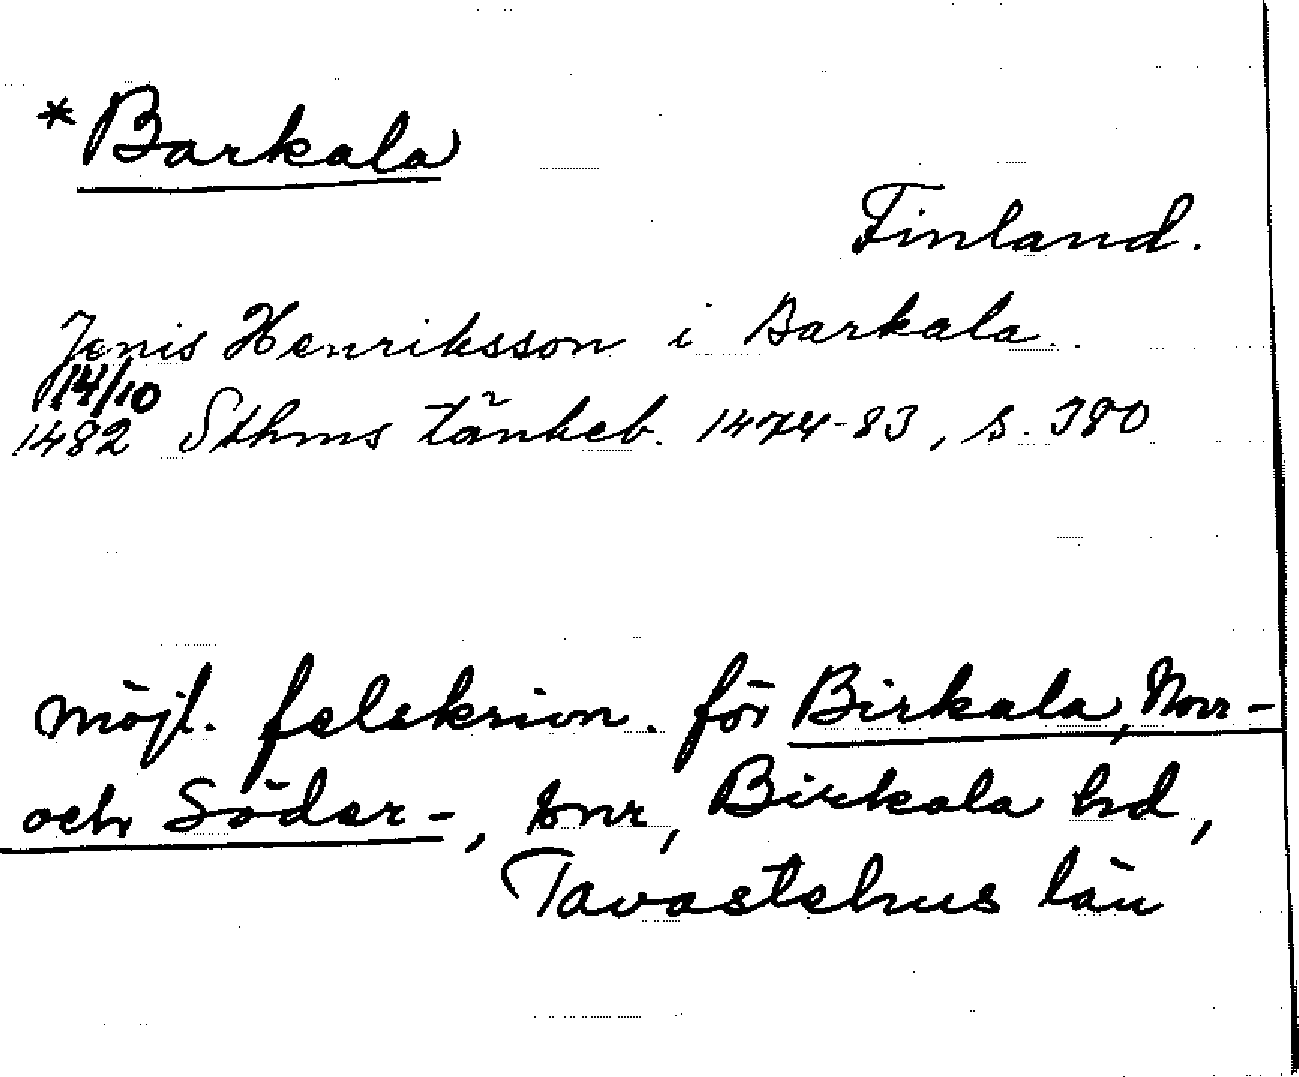 *Barkala
Finland.
Jenis Henriksson i Barkala.
14/10
1482 Sthms tänkeb. 1474-83, s. 380
möjl. felskrivn. för Birkala, Norr-
och Söder-, snr, Birkala hd,
Tavastehus län